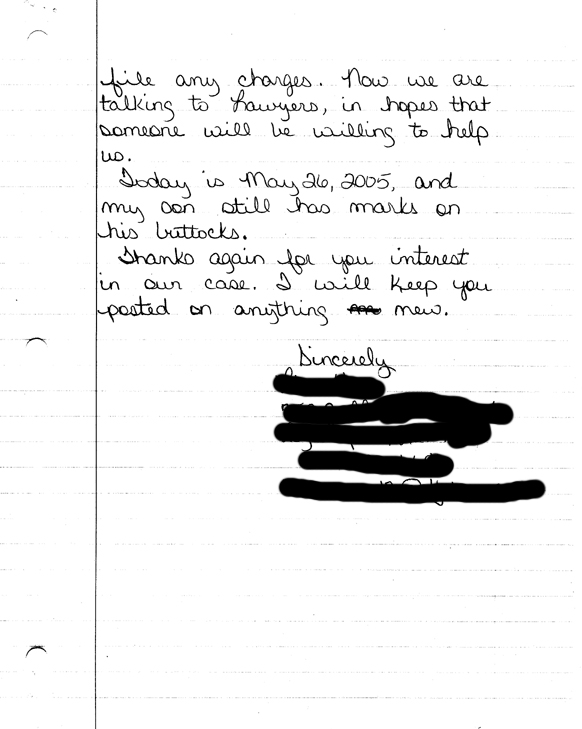 file any charges. Now we are
talking to Lawyers, in hopes that
someone will be willing to help
us.
Today is May 26, 2005, and
my son still has marks on
his buttocks.
Thanks again for you interest
in our case. I will keep you
posted on anything new.
Sincerely